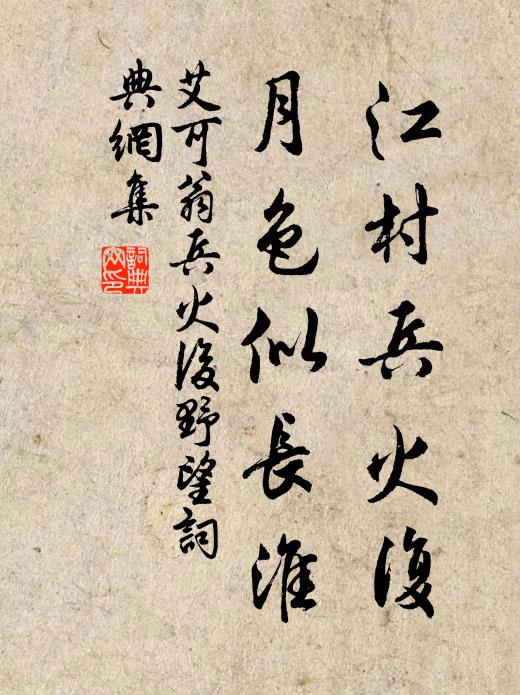 江村兵火後
月色似長淮
艾可翁兵火後野望詞
典網集
詞典
网印